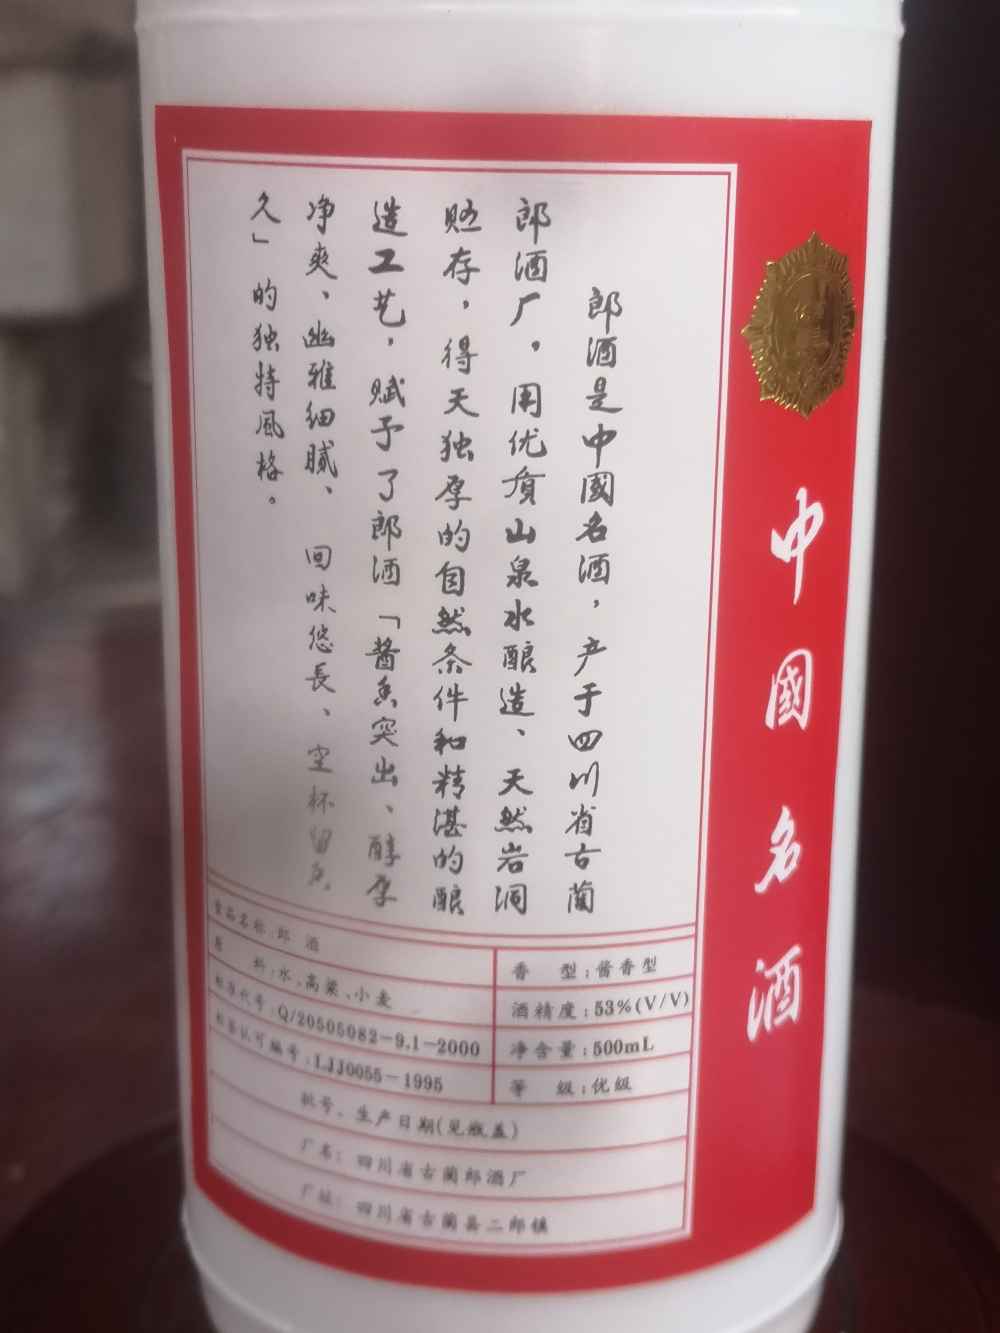 中國名酒
郎酒是中國名酒，产于四川省古蔺
郎酒厂。用优质山泉水酿造、天然岩洞
贮存，得天独厚的自然条件和精湛的酿
造工艺，赋予了郎酒「酱香突出、醇厚
净爽、幽雅细腻、回味悠長、空杯留香
久」的独特風格。
食品名称:郎 酒
原 料:水、高粱、小麦
标准代号:Q/20505082-9.1-2000
标签认可编号:LJJ0055-1995
香 型:酱香型
酒精度:53%(V/V)
净含量:500mL
等 级:优级
批号、生产日期(见瓶盖)
厂名:四川省古蔺郎酒厂
厂址:四川省古蔺县二郎镇